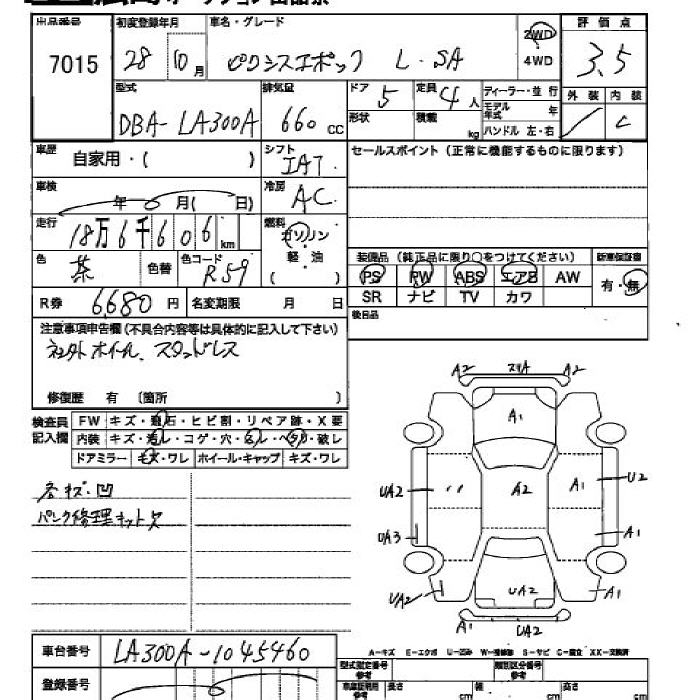 出品番号 7015
初度登録年月 28 10月
車名・グレード ピクシスエポック L・SA
2WD 4WD
評価点 3.5
外装 内装 C
型式 DBA-LA300A
排気量 660 CC
ドア 5 定員 4人
形状 積載 kg
ディーラー・並行
モデル年式 年
ハンドル 左・右
車歴 自家用・( )
シフト IAT
セールスポイント(正常に機能するものに限ります)
車検 年 月( 日)
冷房 AC
走行 18万6千606 km
燃料 ガソリン 軽・油 ( )
色 茶 色替 色コード R59
装備品(純正品に限り○をつけてください) 新車保証書
PS PW ABS エアB AW 有・無
SR ナビ TV カワ
R券 6,680円 名変期限 月 日
後日品
注意事項申告欄(不具合内容等は具体的に記入して下さい)
修復歴 有 〔箇所 〕
検査員記入欄
FW キズ・飛石・ヒビ割・リペア跡・X要
内装 キズ・汚レ・コゲ・穴・スレ・ヘタリ・破レ
ドアミラー キズ・ワレ ホイール・キャップ キズ・ワレ
各キズ・凹
パンク修理キット欠
A2 スリA A2
A1
UA2 A2 A1 U2
UA3 A1
UA2 UA2 A1
A1 UA2
車台番号 LA300A-1045460
A-キズ E-エクボ U-凹ミ W-補修跡 S-サビ C-腐食 XX-交換済
登録番号
型式指定番号参考 類別区分番号参考
長さ cm 幅 cm 高さ cm